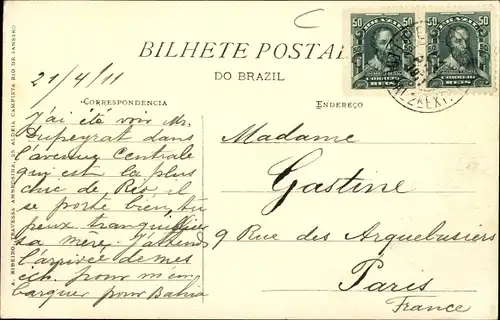 BILHETE POSTAL
DO BRAZIL
21/4/11
CORRESPONDENCIA
J'ai été voir Mr.
Dupeyrat dans
l'avenue Centrale
qui est la plus
chic de Rio il
se porte bien, tu
peux tranquilliser
sa mère. J'attends
l'arrivée de mes
ich. pour m'em
barquer pour Bahia
ENDEREÇO
Madame
Gastine
9 Rue des Arquebusiers
Paris
France
50 BRAZIL 50
REIS
50 BRAZIL 50
REIS
A. RIBEIRO, TRAVESSA AMBROSINA, 25 ALDEIA CAMPISTA RIO DE JANEIRO